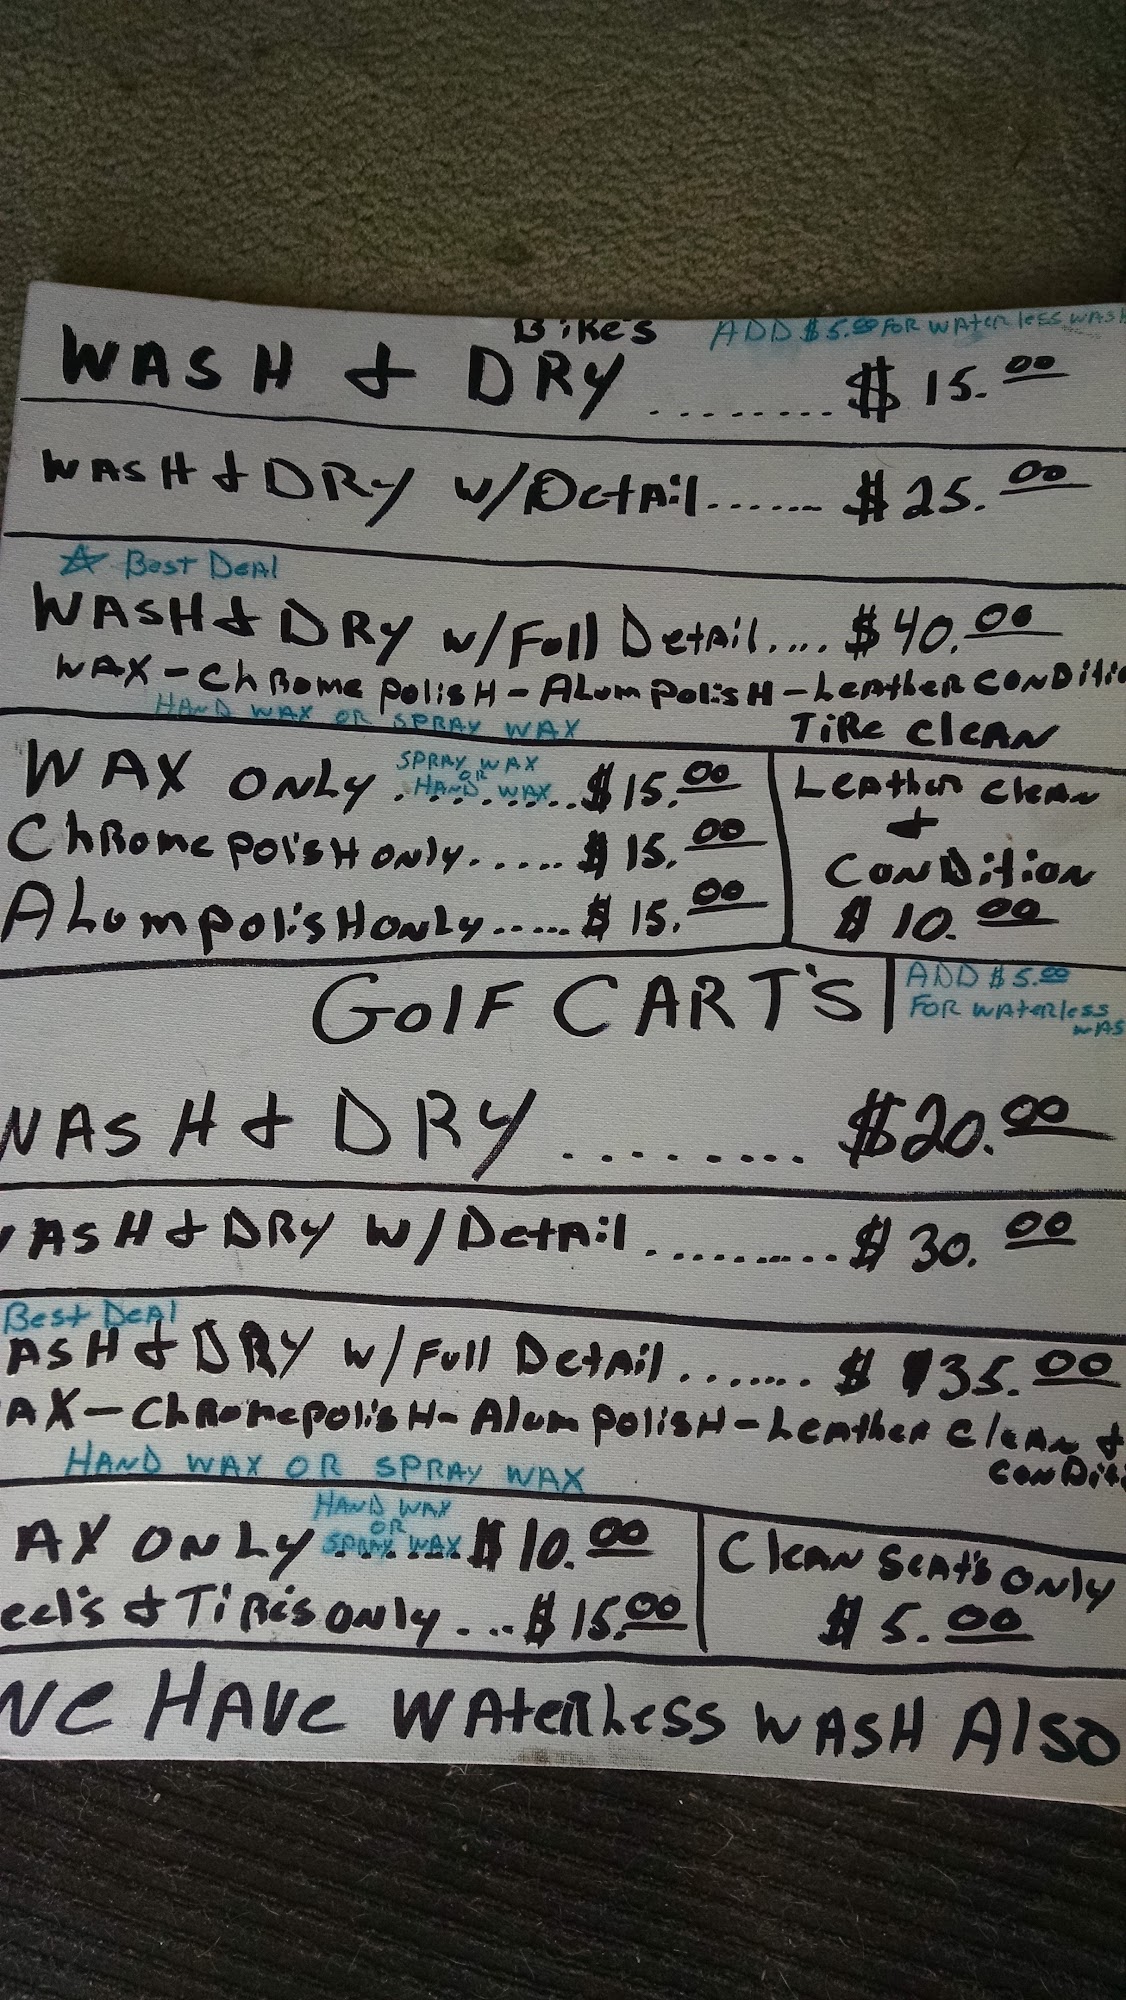 Bike's ADD $5.00 FOR WATERLESS WASH
WASH & DRY ........ $ 15.00
WASH & DRY w/Detail....... $ 25.00
☆ Best Deal
WASH & DRY w/Full Detail.... $ 40.00
WAX - Chrome polish - Alum polish - Leather Conditio
TiRe Clean
HAND WAX OR SPRAY WAX
WAX ONLY ......... $ 15.00
SPRAY WAX
OR
HAND WAX
Chrome polish only..... $ 15.00
Alum polish only..... $ 15.00
Leather Clean
&
Condition
$ 10.00
Golf CART'S
ADD $5.00
FOR WATERLESS
WAS
WASH & DRY ......... $20.00
WASH & DRY w/Detail .......... $ 30.00
Best Deal
ASH & DRY w/Full Detail ....... $ 35.00
AX - Chrome polish - Alum polish - Leather Clean &
Condit
HAND WAX OR SPRAY WAX
AX ONLY ........ $ 10.00
HAND WAX
OR
SPRAY WAX
eel's & TiRe's only ... $ 15.00
Clean Seat's Only
$ 5.00
We HAVE WATERLESS WASH Also